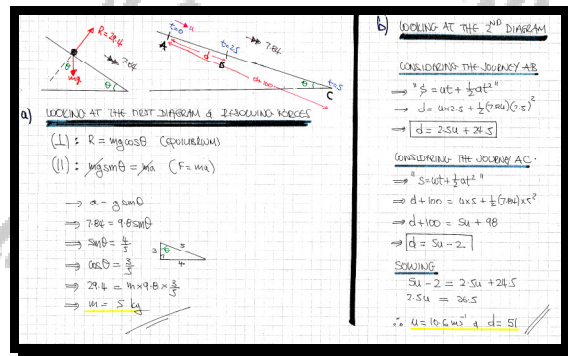 R=29.4
7.84
θ
mg
θ
u
t=0
A
d
t=2.5
7.84
B
d+100
t=5
θ
C
a) LOOKING AT THE FIRST DIAGRAM & RESOLVING FORCES
(⊥) : R = mgcosθ (EQUILIBRIUM)
(II) : mgsinθ = ma (F=ma)
⇒ a = gsinθ
⇒ 7.84 = 9.8sinθ
⇒ sinθ = 4/5
⇒ cosθ = 3/5
3 θ 5
4
⇒ 29.4 = m×9.8×3/5
⇒ m = 5 kg
b) LOOKING AT THE 2ND DIAGRAM
CONSIDERING THE JOURNEY AB
⇒ "s = ut + ½at²"
⇒ d = u×2.5 + ½(7.84)(2.5)²
⇒ d = 2.5u + 24.5
CONSIDERING THE JOURNEY AC.
⇒ "s=ut+½at²"
⇒ d+100 = u×5 + ½(7.84)×5²
⇒ d+100 = 5u + 98
⇒ d = 5u - 2
SOLVING
5u - 2 = 2.5u + 24.5
2.5u = 26.5
∴ u = 10.6 ms⁻¹ & d = 51